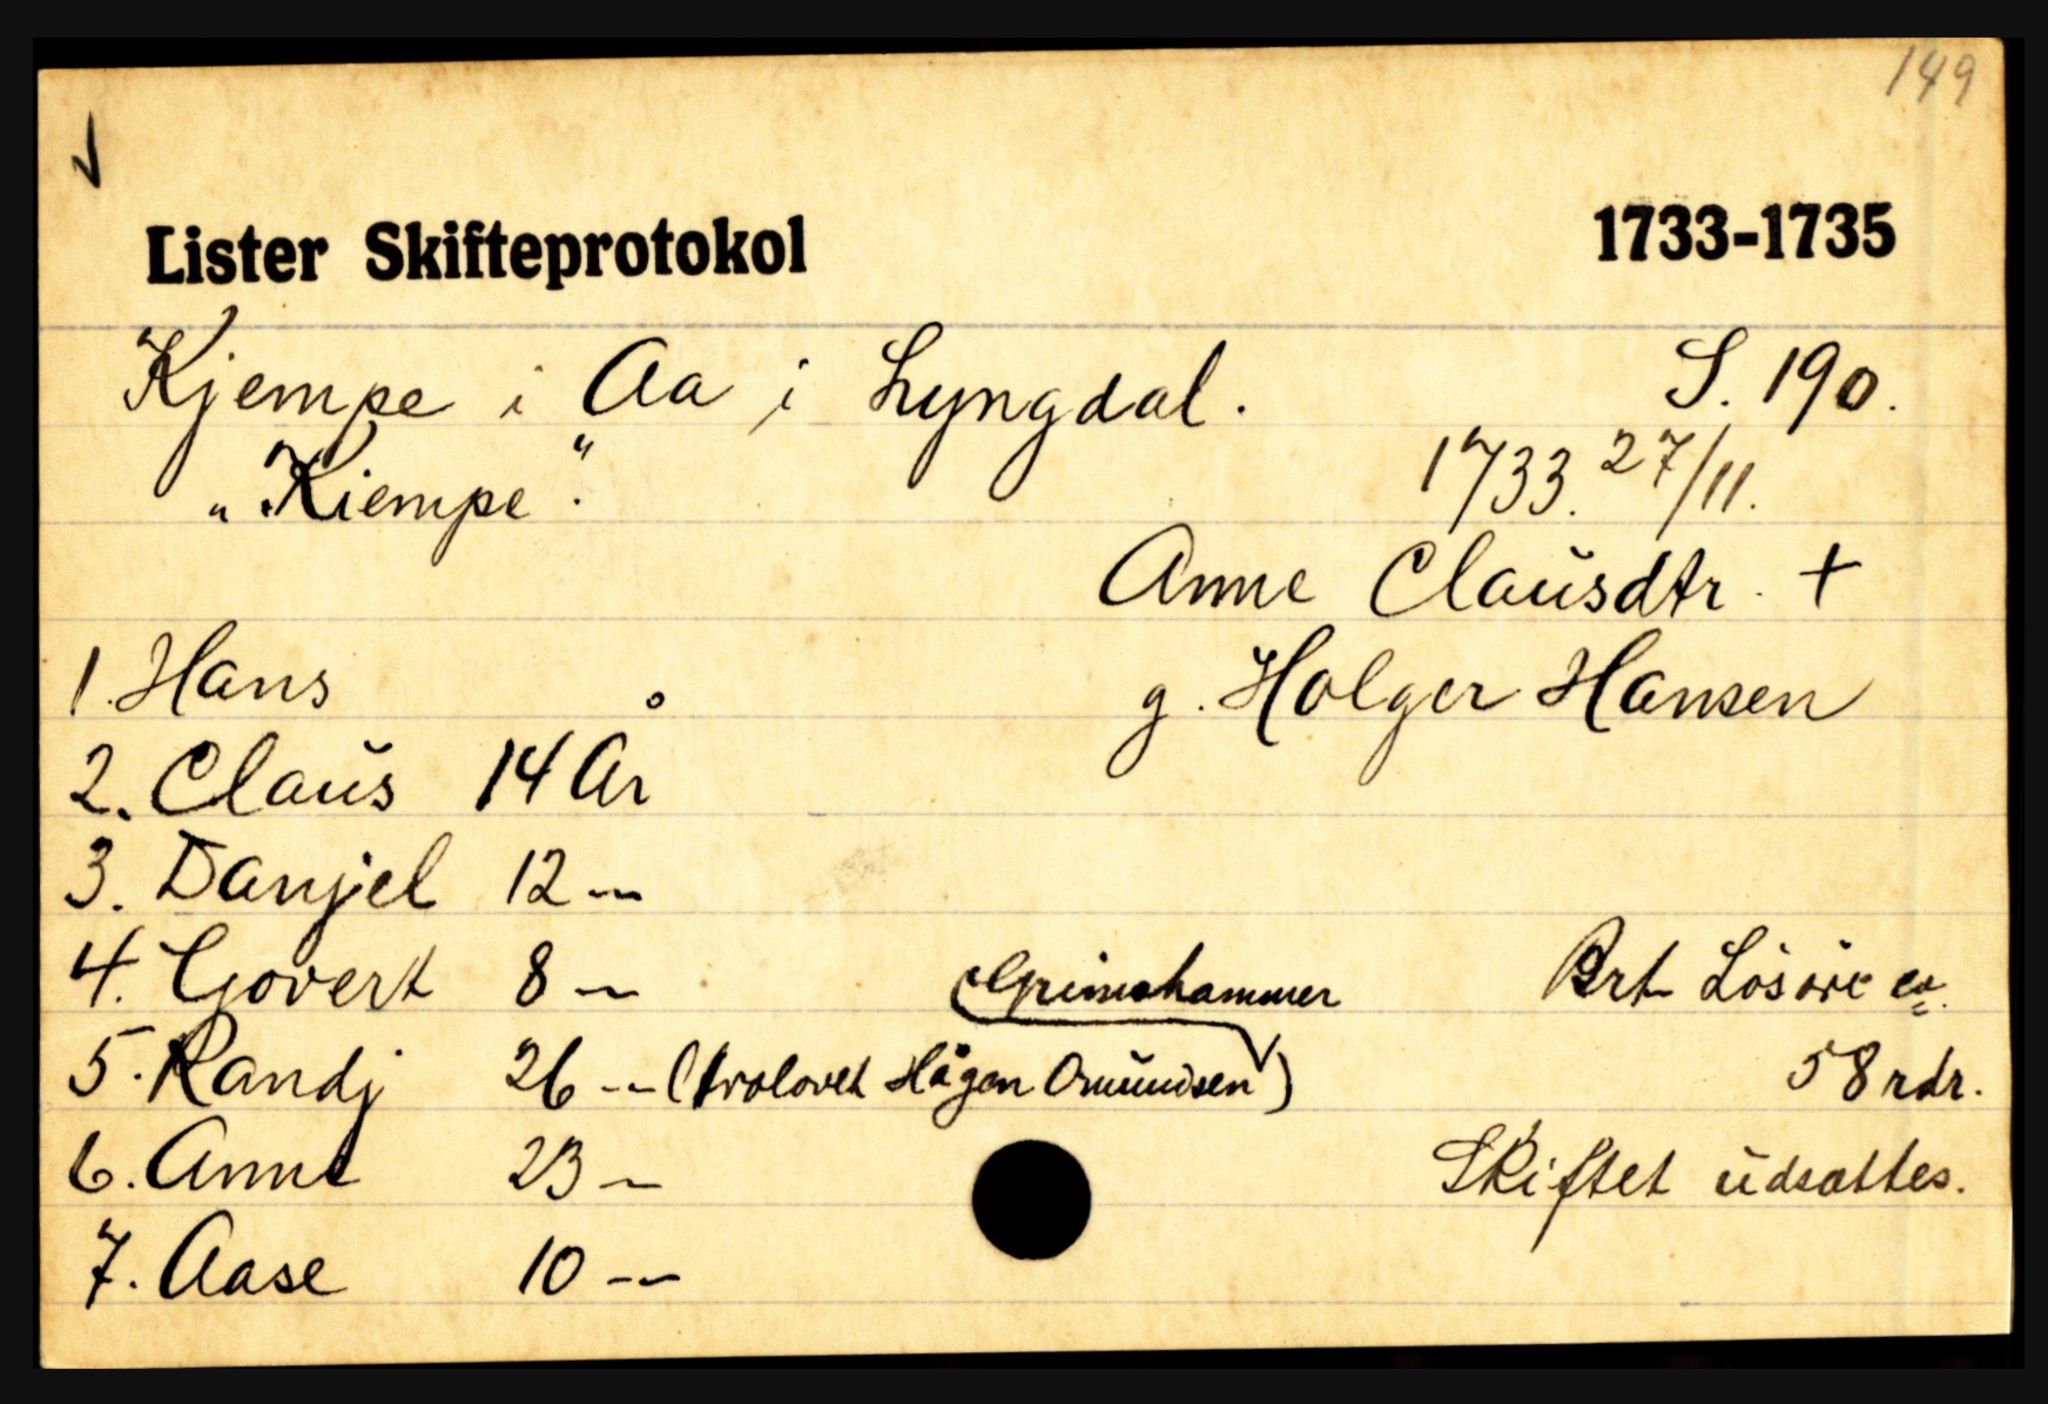 149
Lister Skifteprotokol 1733-1735
Kjempe i Aa i Lyngdal. S. 190.
"Kiempe". 1733. 27/11.
Anne Clausdtr. +
1. Hans g. Holger Hansen
2. Claus 14 År
3. Danjel 12 —
4. Govert 8 — Grimshammer Brt Løsøre
5. Randj 26 — (trolovet Hågen Omundsen) 58 rdr.
6. Anne 23 — Skiftet udsattes.
7. Aase 10 —